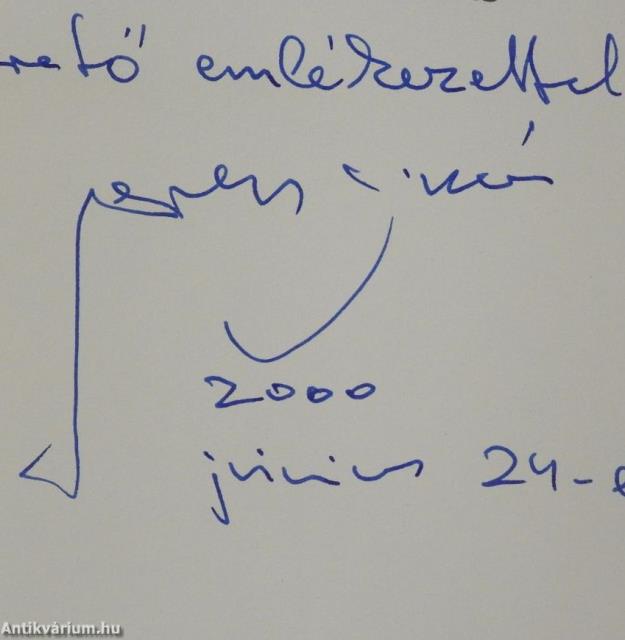 rető emlékezettel
2000
június 24-e
Antikvárium.hu